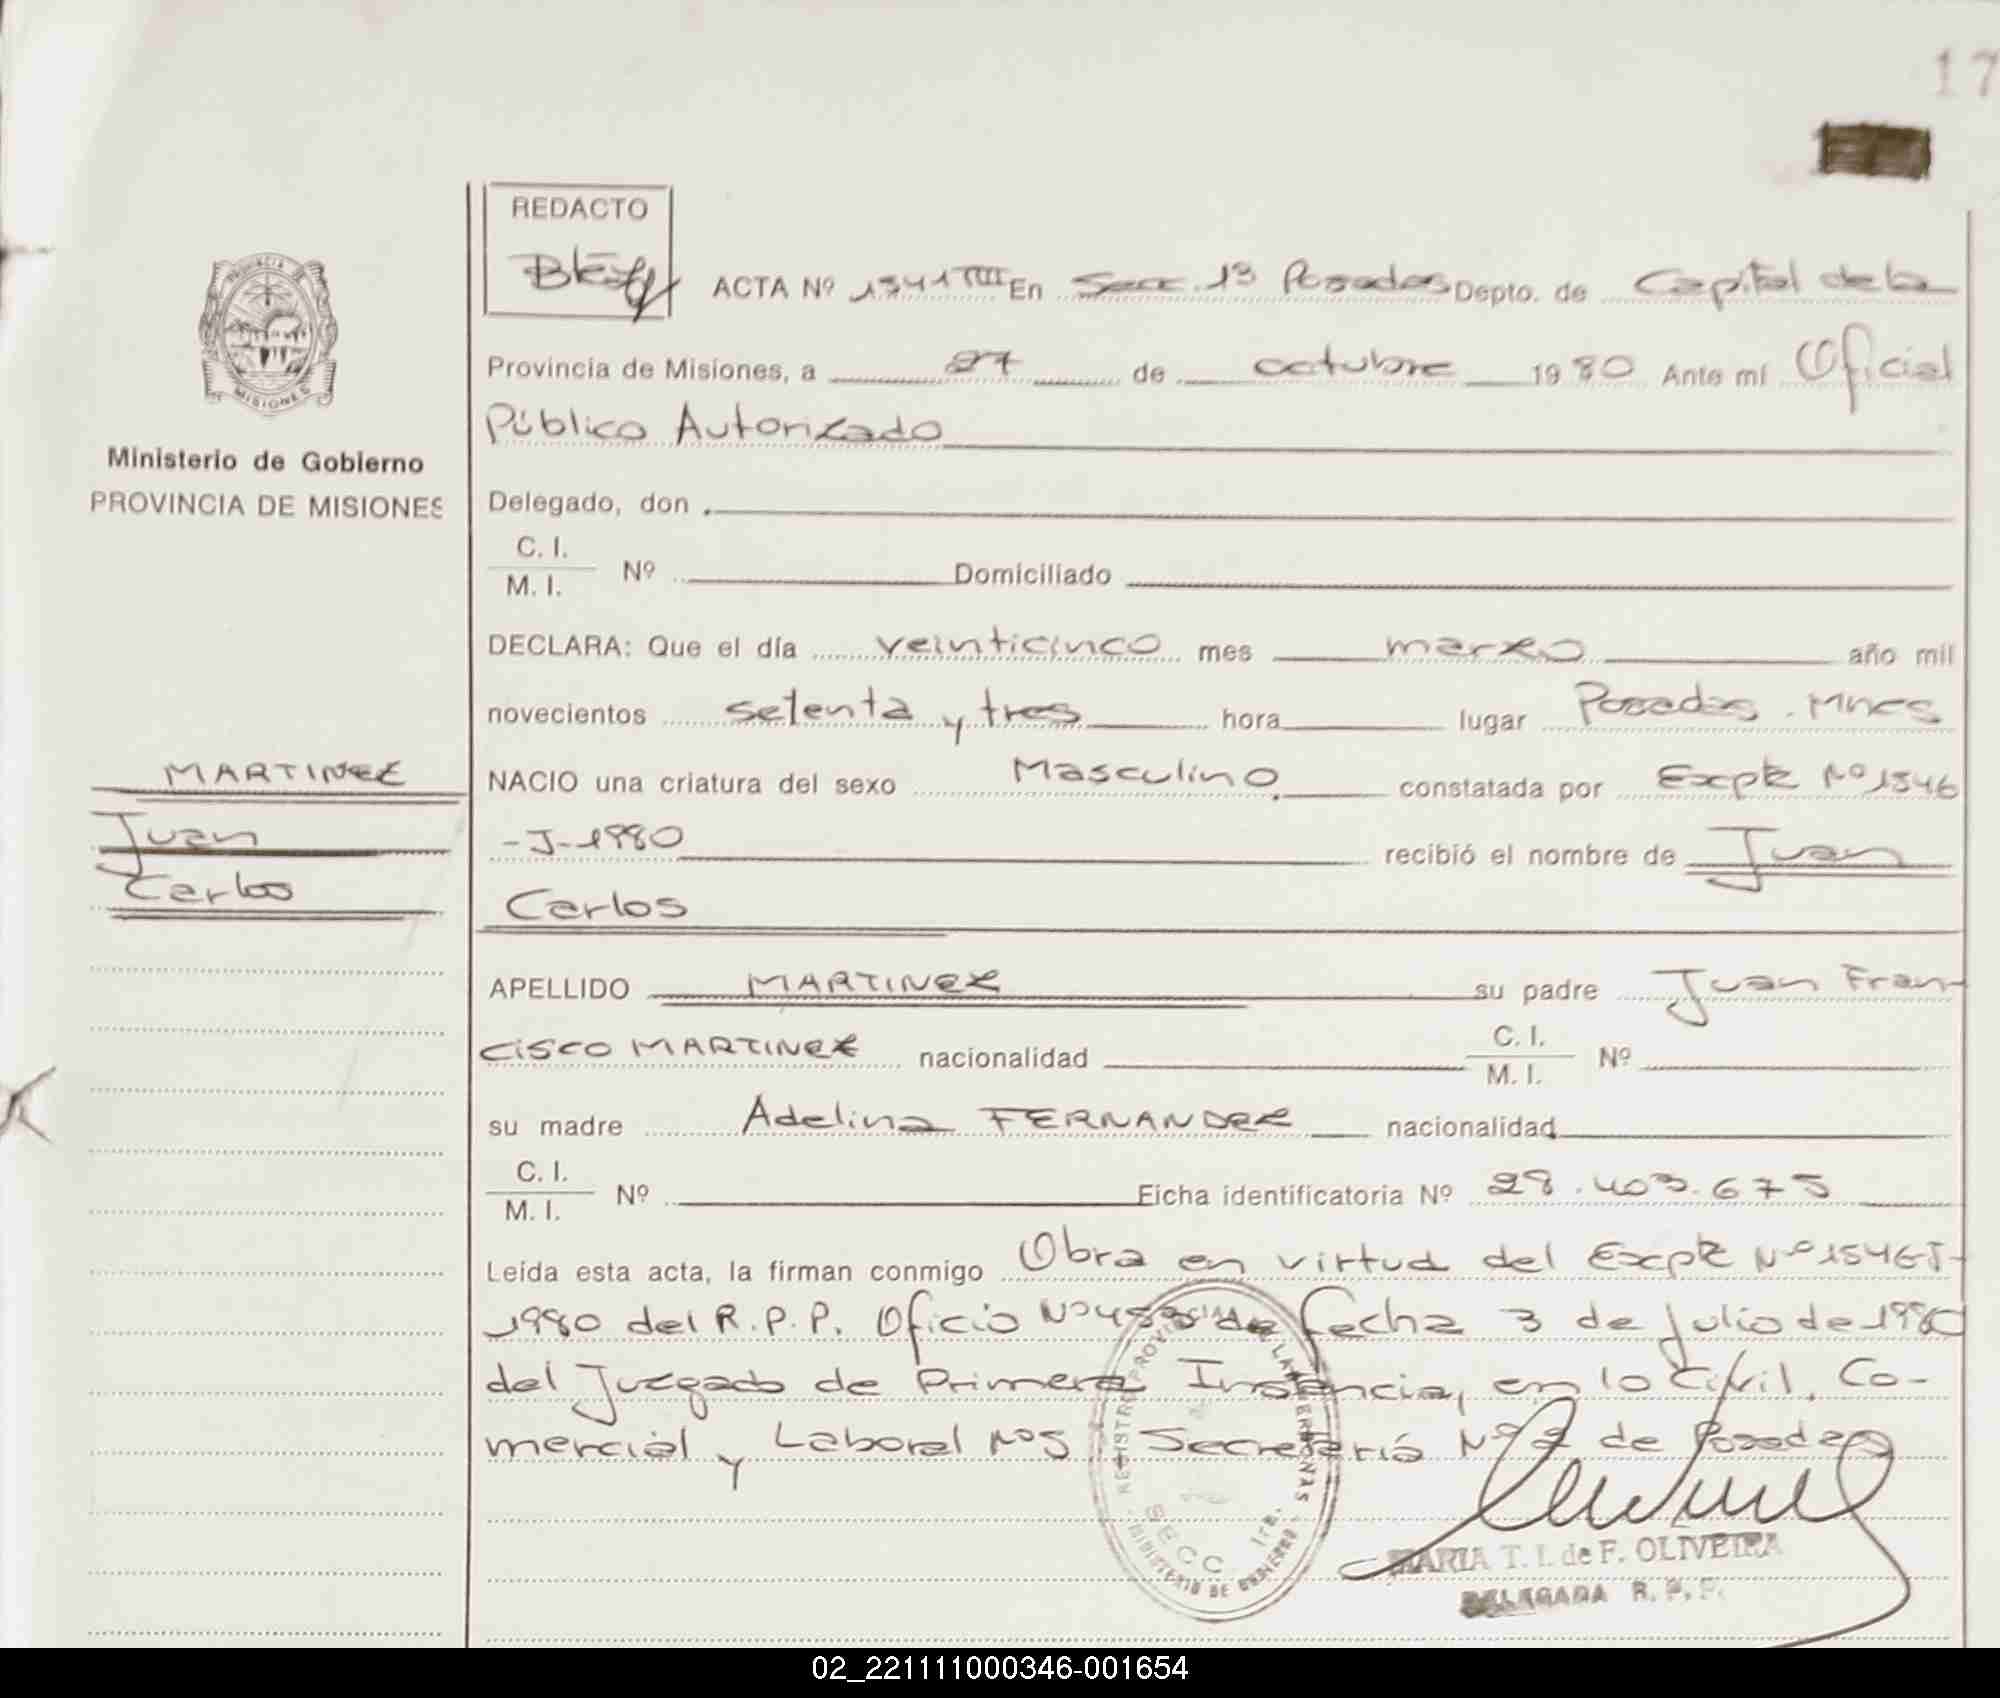 17
REDACTO
ACTA Nº 1541 TIII En Secc. 1ª Posadas Depto. de Capital de la
Provincia de Misiones, a 27 de octubre 1980 Ante mí Oficial
Público Autorizado
PROVINCIA MISIONES
Ministerio de Gobierno
PROVINCIA DE MISIONES
Delegado, don
C. I.
M. I. Nº Domiciliado
DECLARA: Que el día veinticinco mes marzo año mil
novecientos setenta y tres hora lugar Posadas. Mnes
MARTINEZ
Juan
Carlos
NACIO una criatura del sexo Masculino constatada por Expte Nº 1546
-J-1980 recibió el nombre de Juan
Carlos
APELLIDO MARTINEZ su padre Juan Fran-
cisco MARTINEZ nacionalidad C. I. M. I. Nº
su madre Adelina FERNANDEZ nacionalidad
C. I.
M. I. Nº Ficha identificatoria Nº 28.403.675
Leída esta acta, la firman conmigo Obra en virtud del Expte Nº 1546 J-
1980 del R.P.P. Oficio Nº de fecha 3 de julio de 1980
del Juzgado de Primera Instancia, en lo Civil, Co-
mercial y Laboral Nº 5 Secretaría Nº de Posadas
REGISTRO PROVINCIAL DE LAS PERSONAS
SECC. 1ra.
MINISTERIO DE GOBIERNO
MARIA T. I. de F. OLIVEIRA
DELEGADA R. P. P.
02_221111000346-001654